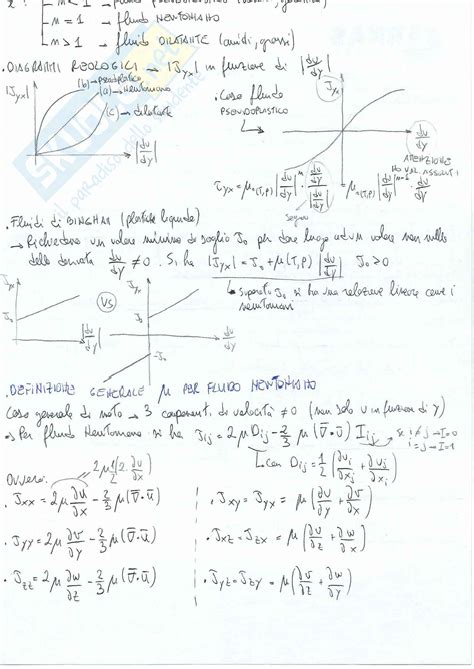 n < 1 → fluido PSEUDOPLASTICO
n = 1 → fluido NEWTONIANO
n > 1 → fluido DILATANTE (amidi, grassi)
. DIAGRAMMI REOLOGICI → |τyx| in funzione di |du/dy|
|τyx|
(b) → pseudoplastico
(a) → Newtoniano
(c) → dilatante
|du/dy|
. Caso fluido PSEUDOPLASTICO
τyx
du/dy
ATTENZIONE NO VAL. ASSOLUTI
segno
. Fluidi di BINGHAM (plastici liquidi)
→ Richiedono un valore minimo di soglia τ0 per dare luogo ad un valore non nullo
della derivata du/dy ≠ 0. Si ha |τyx| = τ0 + μ(T,P) |du/dy| τ0 > 0
↳ Superato τ0 si ha una relazione lineare come i newtoniani
τyx
τ0
|du/dy|
VS
τyx
τ0
-τ0
du/dy
. DEFINIZIONE GENERALE μ PER FLUIDO NEWTONIANO
Caso generale di moto → 3 componenti di velocità ≠ 0 (non solo u in funzione di y)
→ Per fluido Newtoniano si ha τij = 2μ Dij - 2/3 μ (∇·u) Iij
se i ≠ j → I=0
i = j → I=1
↳ con Dij = 1/2 (∂ui/∂xj + ∂uj/∂xi)
Ovvero:
2μ 1/2 (2 ∂u/∂x)
. τxx = 2μ ∂u/∂x - 2/3 μ (∇·u)
. τxy = τyx = μ (∂u/∂y + ∂v/∂x)
. τyy = 2μ ∂v/∂y - 2/3 μ (∇·u)
. τxz = τzx = μ (∂u/∂z + ∂w/∂x)
. τzz = 2μ ∂w/∂z - 2/3 μ (∇·u)
. τyz = τzy = μ (∂v/∂z + ∂w/∂y)
il paradiso dello studente